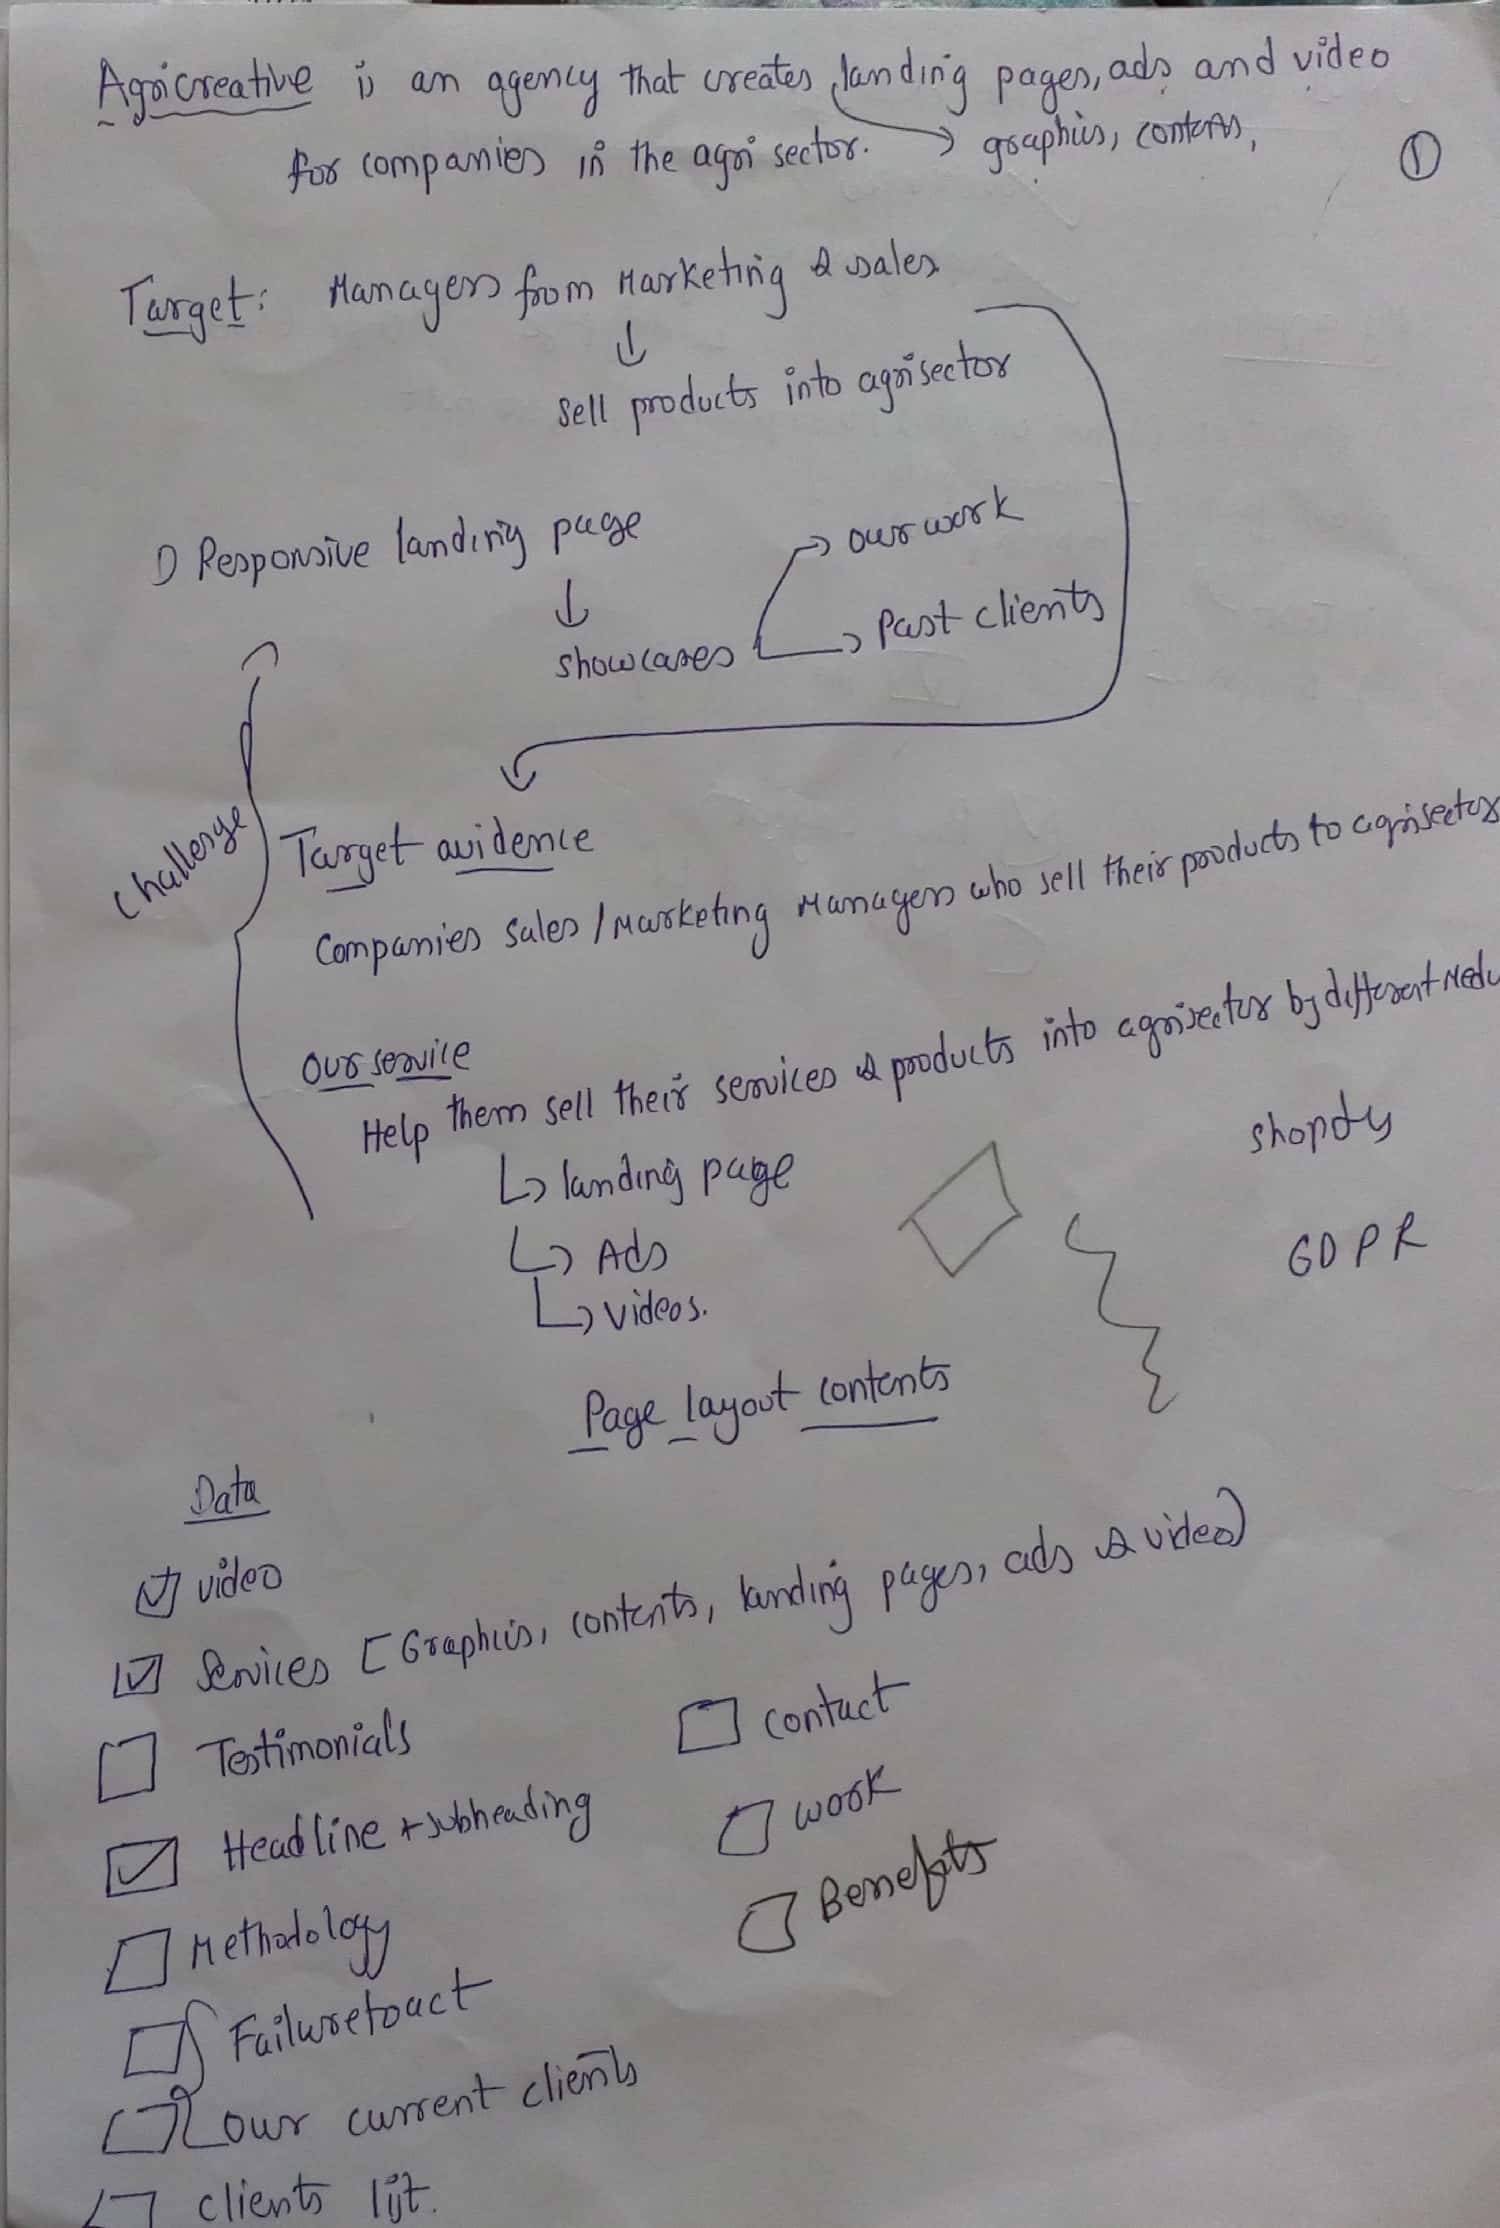 Agricreative is an agency that creates landing pages, ads and video
for companies in the agri sector. → graphics, contents,
①
Target: Managers from Marketing & sales
↓
sell products into agrisector
1) Responsive landing page
↓
showcases
→ our work
→ Past clients
challenge
Target avidence
Companies sales / Marketing Managers who sell their products to agrisector
Our service
Help them sell their services & products into agrisector by different
↳ landing page
↳ Ads
↳ videos.
GDPR
Page layout contents
Data
☑ video
☑ Services [Graphics, contents, landing pages, ads & video]
☐ Testimonials
☐ contact
☑ Headline + subheading
☐ work
☐ Methodology
☐ Benefits
☐ Failure to act
☐ our current clients
☐ clients list.